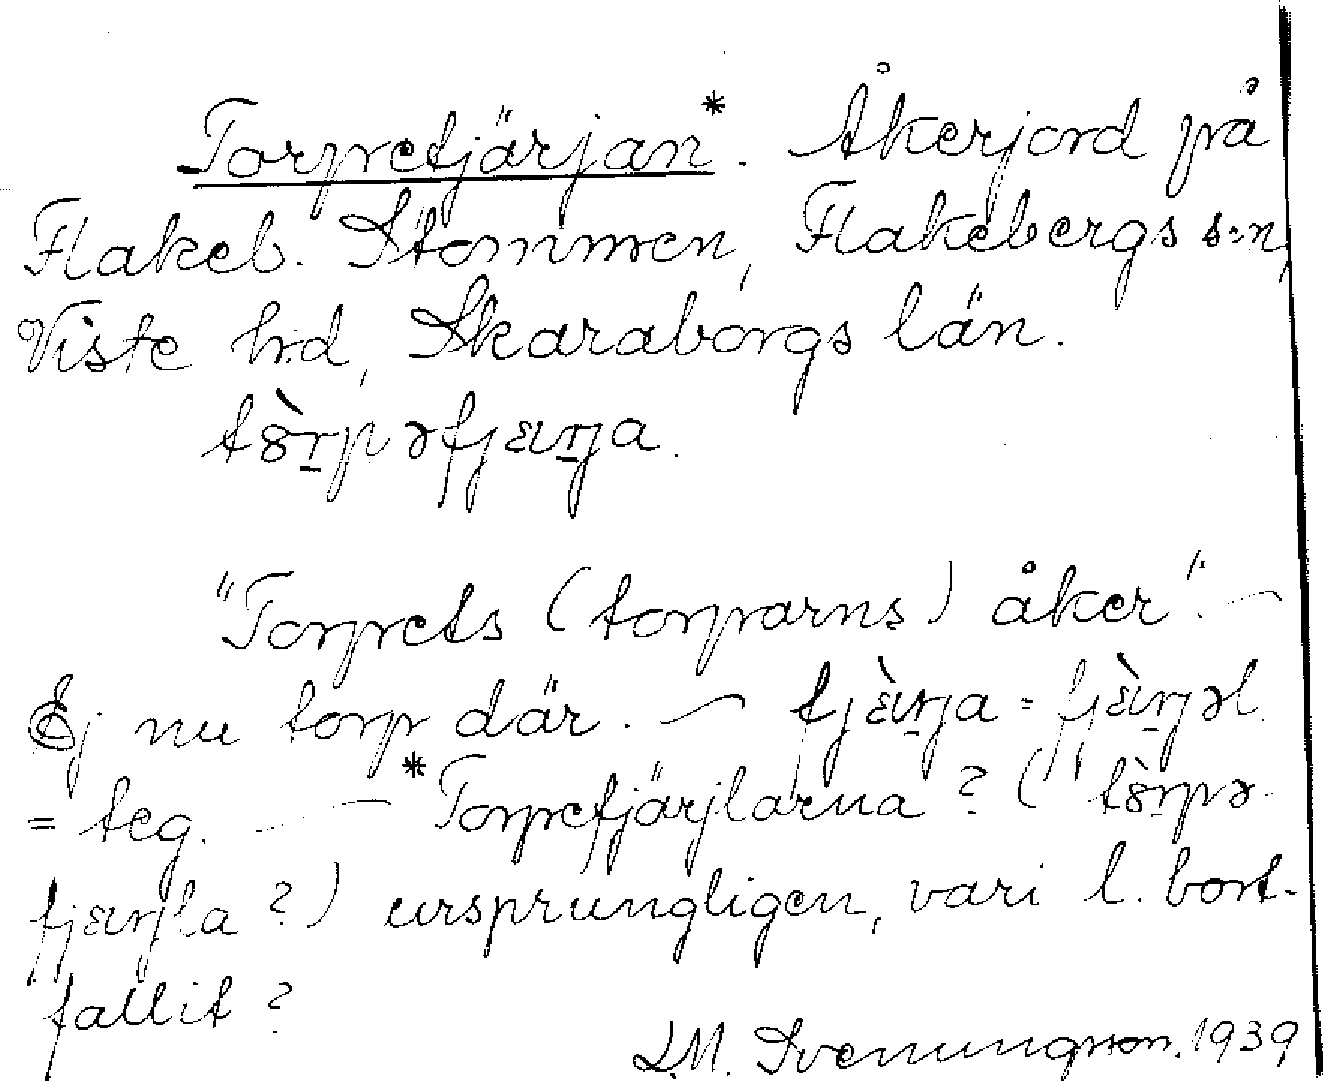 Torpetjärjan*. Åkerjord på
Flakeb. Stommen, Flakebergs s:n,
Viste hd, Skaraborgs län.
"Torpets (torparns) åker". —
Ej nu torp där. —
= teg. — — *Torpefjärjlarna? (
?) ursprungligen, vari l. bort-
fallit?
L.M. Svenungsson. 1939